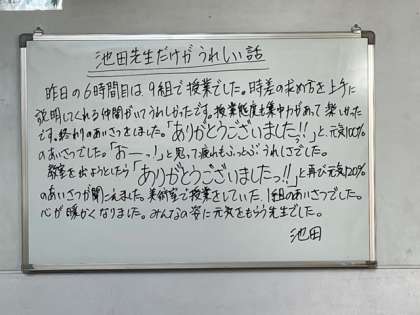 池田先生だけがうれしい話
昨日の6時間目は9組で授業でした。時差の求め方を上手に
説明してくれる仲間がいてうれしかったです。授業態度も集中力があって楽しかった
です。終わりのあいさつをしました。「ありがとうございました!!」と、元気100%
のあいさつでした。「おーっ!」と思って疲れもふっとぶうれしさでした。
教室を出ようとしたら「ありがとうございましたっ!!」と再び元気120%
のあいさつが聞こえました。美術室で授業をしていた1組のあいさつでした。
心が暖かくなりました。みんなの姿に元気をもらう先生でした。
池田